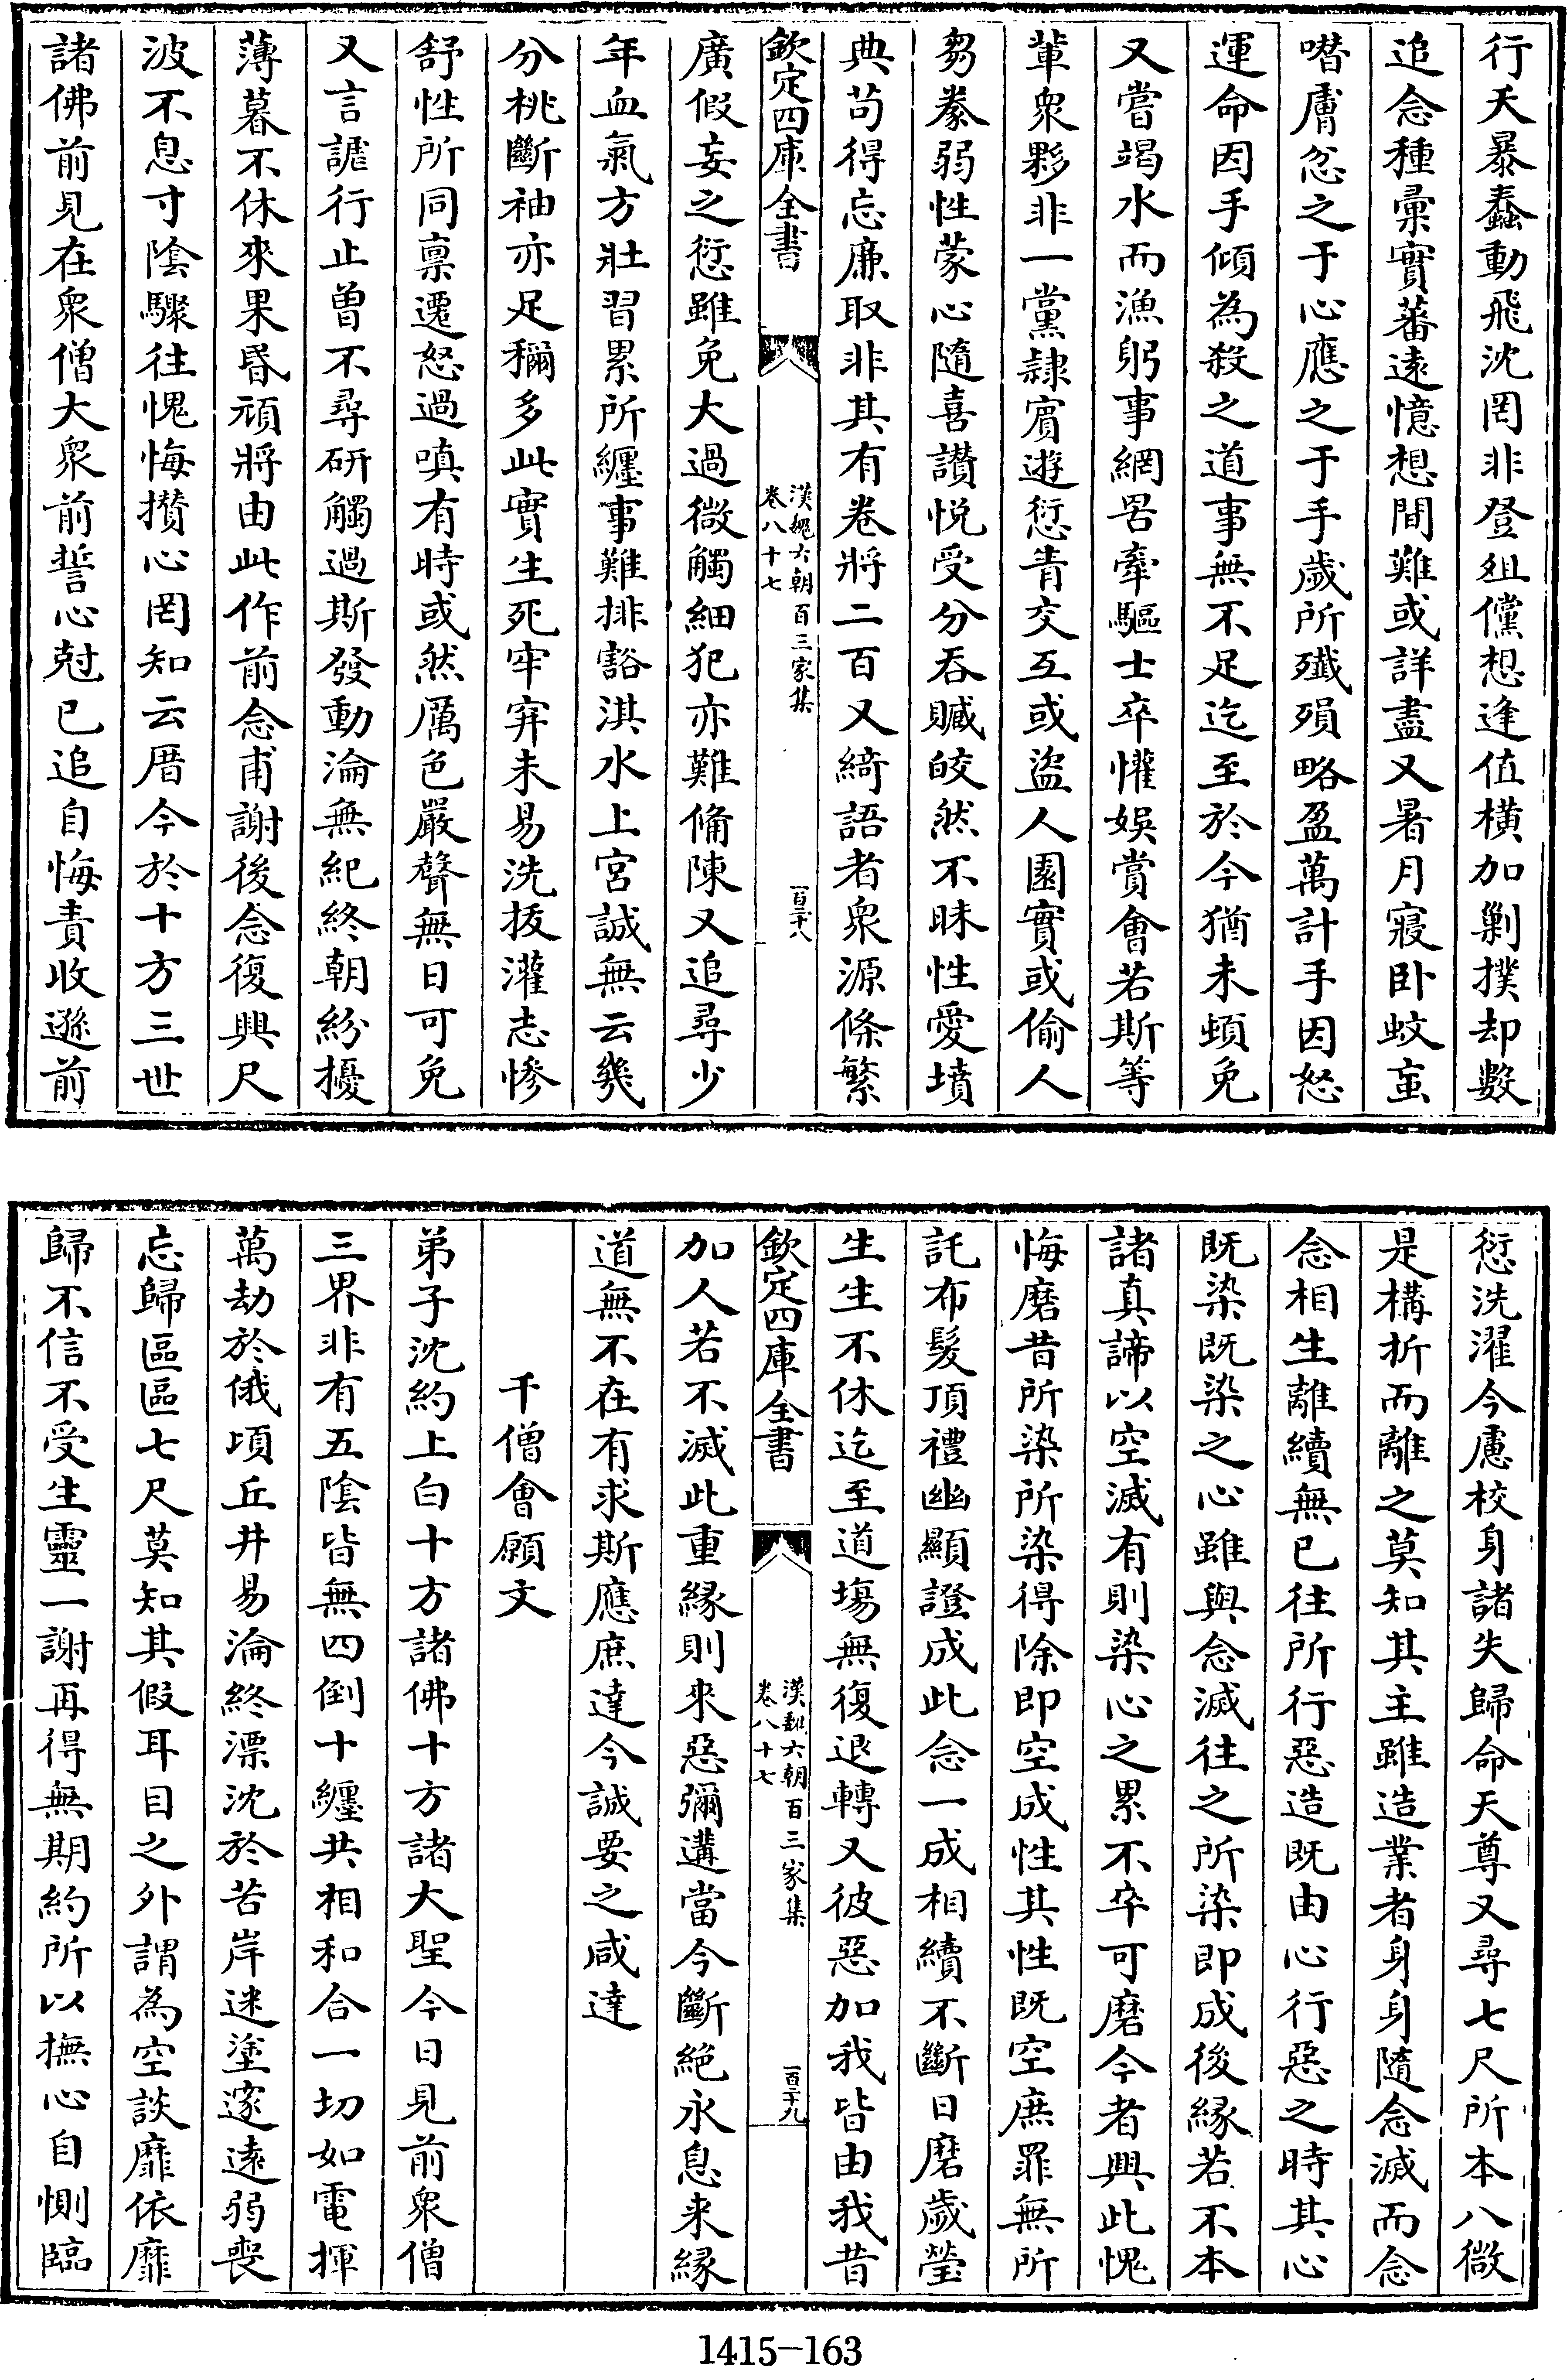 行夭暴蠢動飛沈罔非登俎儻想逢值横加剿撲却數
追念種彙實蕃遠憶想間難或詳盡又暑月寢卧蚊䖟
噆膚忿之于心應之于手歲所殱殞略盈萬計手因怒
運命因手傾為殺之道事無不足迄至於今猶未頓免
又嘗竭水而漁躬事網罟牽驅士卒懽娱賞會若斯等
輩衆夥非一黨隷賓遊愆青交互或盜人園實或偷人
芻豢弱性蒙心隨喜讃悦受分吞贓皎然不昧性愛墳
典苟得忘廉取非其有卷將二百又綺語者衆源條繁
欽定四庫全書
漢魏六朝百三家集
卷八十七
一百二十八
廣假妄之愆雖免大過微觸細犯亦難備陳又追尋少
年血氣方壯習累所纏事難排豁淇水上宫誠無云幾
分桃斷袖亦足稱多此實生死牢穽未易洗拔灌志慘
舒性所同禀遷怒過嗔有時或然厲色嚴聲無日可免
又言謔行止曾不尋研觸過斯發動淪無紀終朝紛擾
薄暮不休來果昏頑將由此作前念甫謝後念復興尺
波不息寸陰驟往愧悔攅心罔知云厝今於十方三世
諸佛前見在衆僧大衆前誓心尅已追自悔責收遜前
愆洗濯今慮校身諸失歸命天尊又尋七尺所本八微
是構折而離之莫知其主雖造業者身身隨念滅而念
念相生離續無已往所行惡造既由心行惡之時其心
既染既染之心雖與念滅往之所染即成後縁若不本
諸真諦以空滅有則染心之累不卒可磨今者興此愧
悔磨昔所染所染得除即空成性其性既空庶罪無所
託布髮頂禮幽顯證成此念一成相續不斷日磨歲瑩
生生不休迄至道塲無復退轉又彼惡加我皆由我昔
欽定四庫全書
漢魏六朝百三家集
卷八十七
一百二十九
加人若不滅此重縁則來惡彌遘當今斷絶永息来縁
道無不在有求斯應庶達今誠要之咸達
千僧會願文
弟子沈約上白十方諸佛十方諸大聖今日見前衆僧
三界非有五陰皆無四倒十纏共相和合一切如電揮
萬劫於俄頃丘井易淪終漂沈於苦岸迷塗邃遠弱喪
忘歸區區七尺莫知其假耳目之外謂為空談靡依靡
歸不信不受生靈一謝再得無期約所以撫心自惻臨
1415-163